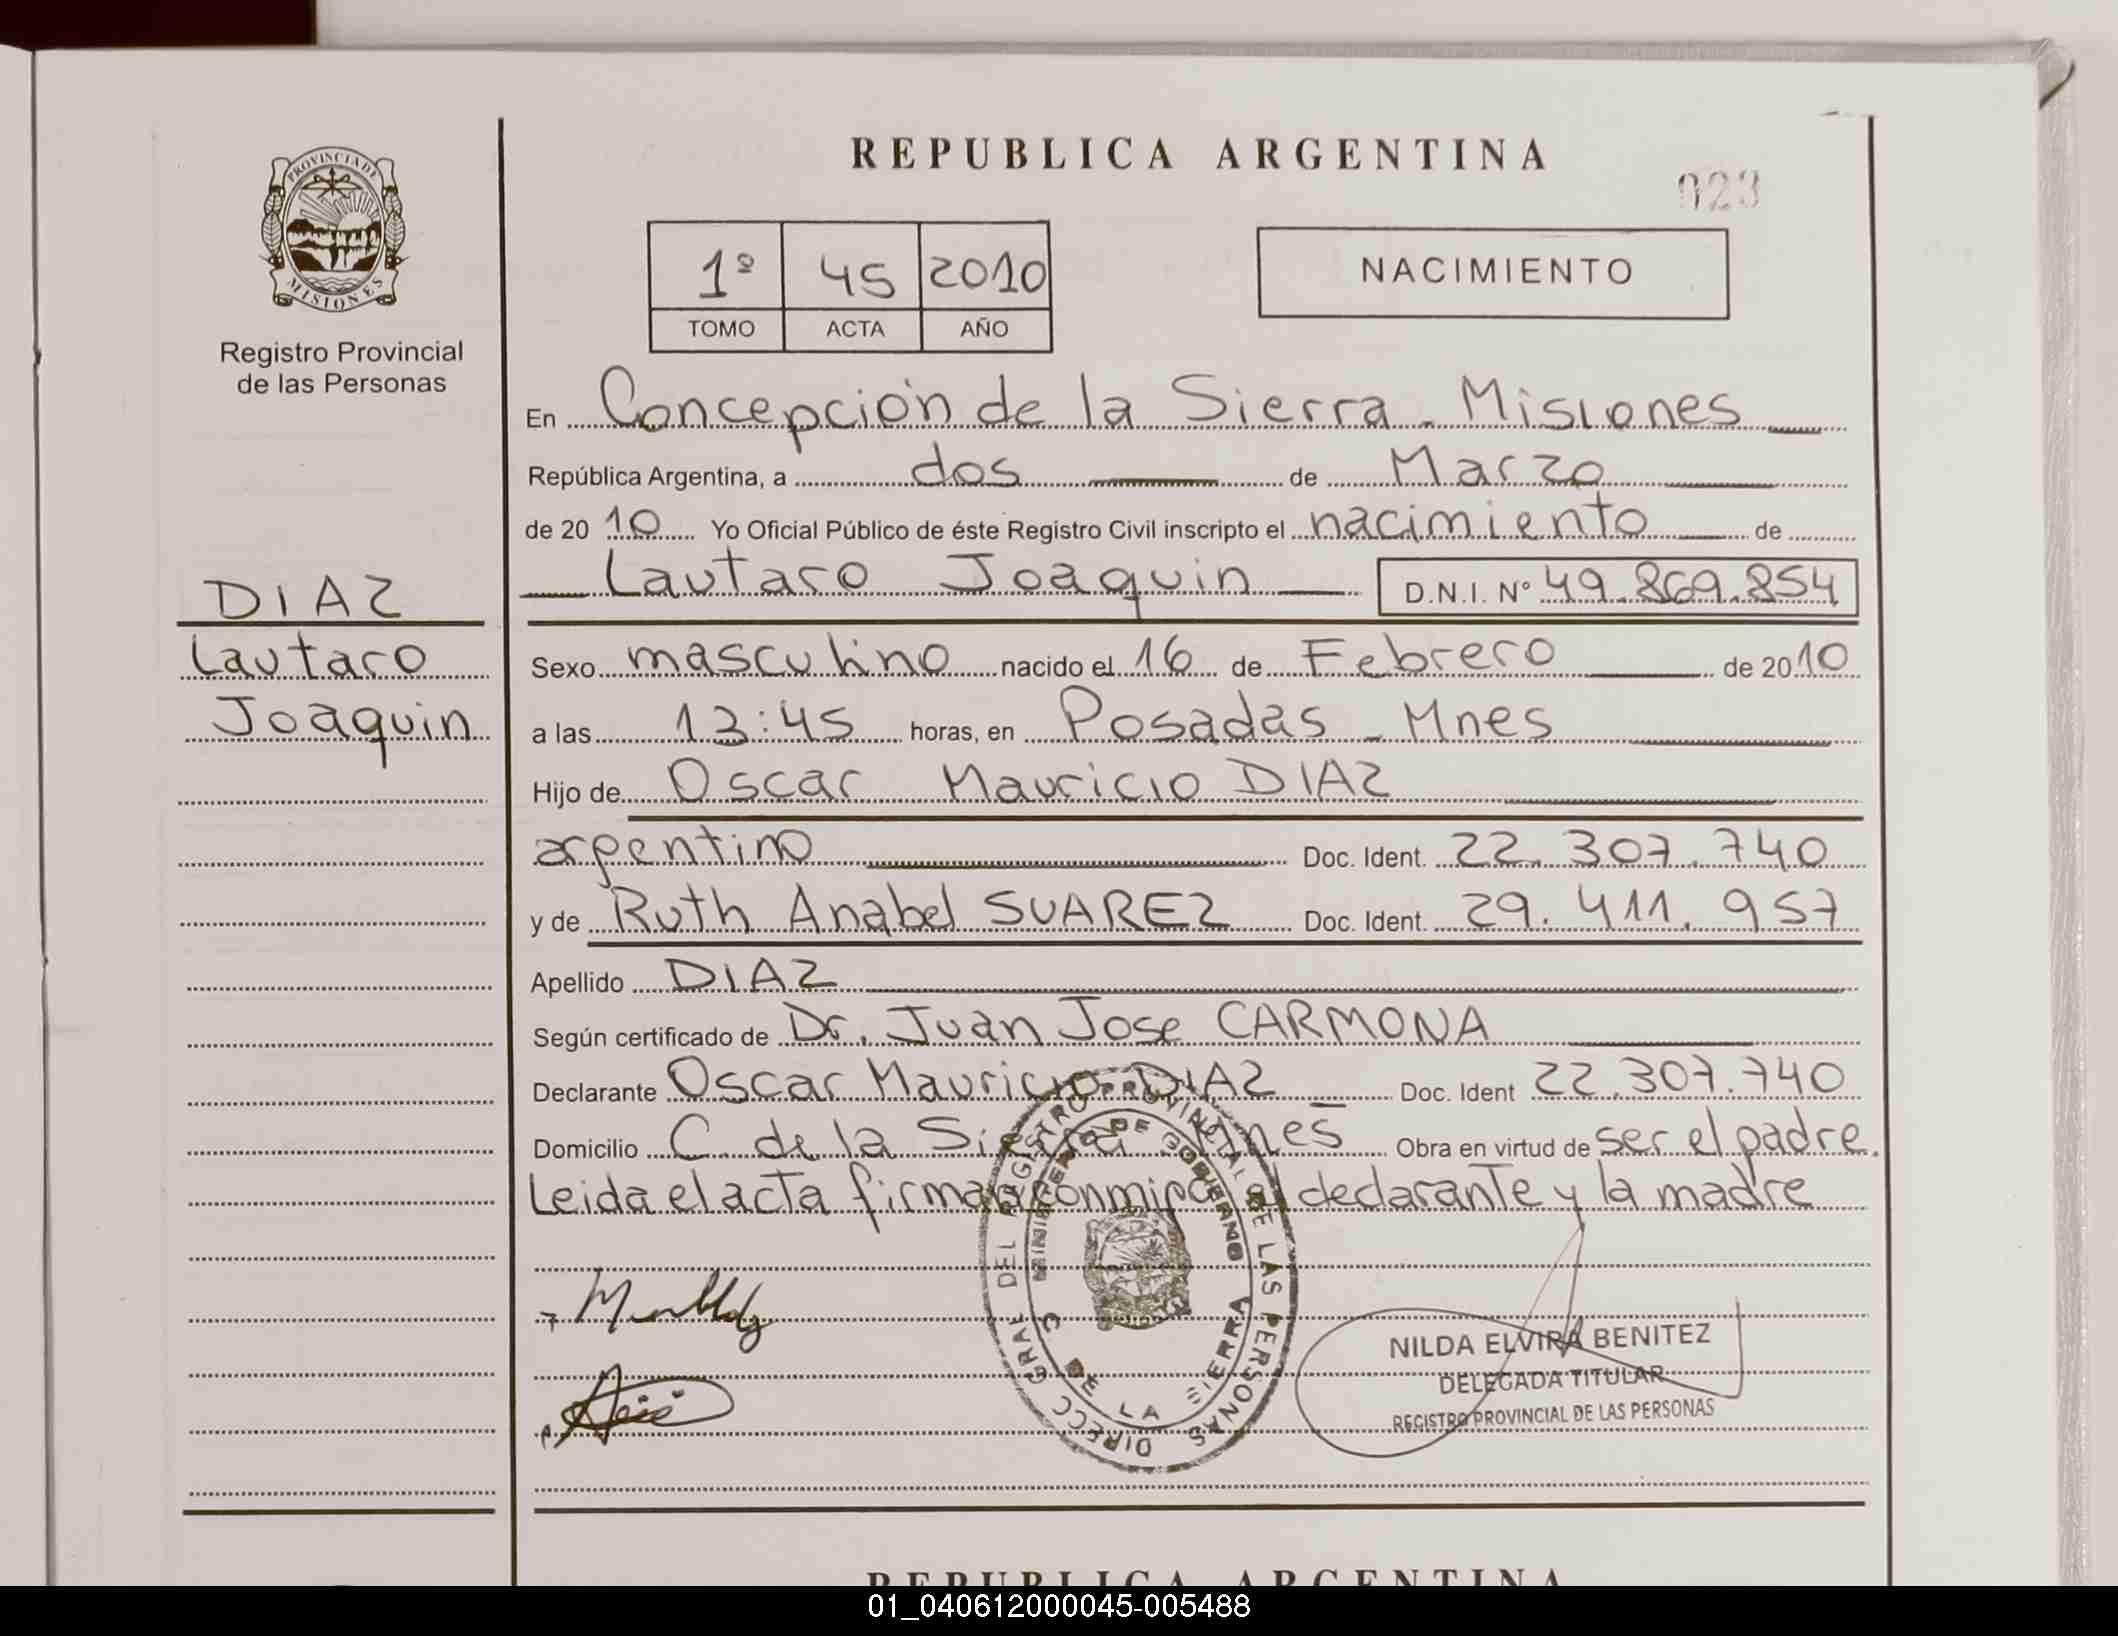 PROVINCIA DE
MISIONES
Registro Provincial
de las Personas
DIAZ
Lautaro
Joaquin
REPUBLICA ARGENTINA
023
1º 45 2010
TOMO ACTA AÑO
NACIMIENTO
En Concepción de la Sierra - Misiones
República Argentina, a dos de Marzo
de 20 10 Yo Oficial Público de éste Registro Civil inscripto el nacimiento de
Lautaro Joaquin D.N.I. Nº 49.869.854
Sexo masculino nacido el 16 de Febrero de 20 10
a las 13:45 horas, en Posadas - Mnes
Hijo de Oscar Mauricio DIAZ
argentino Doc. Ident. 22.307.740
y de Ruth Anabel SUAREZ Doc. Ident. 29.411.957
Apellido DIAZ
Según certificado de Dr. Juan Jose CARMONA
Declarante Oscar Mauricio DIAZ Doc. Ident 22.307.740
Domicilio C. de la Sierra Mnes Obra en virtud de ser el padre.
Leida el acta firman conmigo el declarante y la madre
DIRECC GRAL DEL REGISTRO PROVINCIAL DE LAS PERSONAS
MINISTERIO DE GOBIERNO
C DE LA SIERRA
NILDA ELVIRA BENITEZ
DELEGADA TITULAR
REGISTRO PROVINCIAL DE LAS PERSONAS
REPUBLICA ARGENTINA
01_040612000045-005488